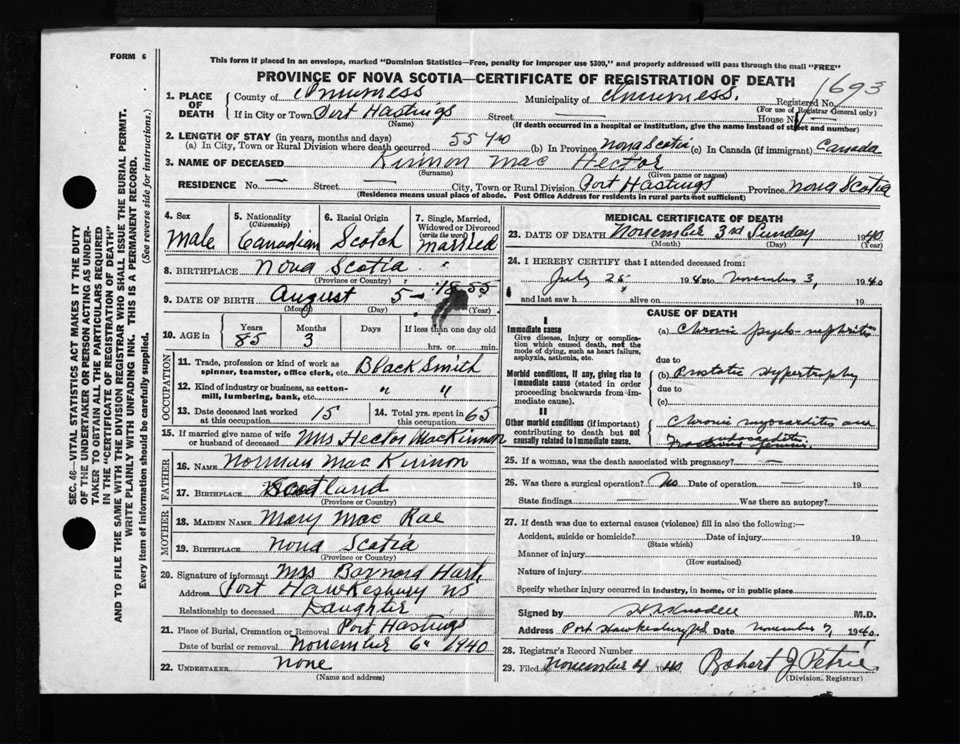 FORM 6
This form if placed in an envelope, marked "Dominion Statistics—Free, penalty for improper use $300," and properly addressed will pass through the mail "FREE"
PROVINCE OF NOVA SCOTIA—CERTIFICATE OF REGISTRATION OF DEATH
1693
1. PLACE OF DEATH
County of Inverness Municipality of Inverness. Registered No.
(For use of Registrar General only)
If in City or Town Port Hastings Street — House No. —
(Name) (If death occurred in a hospital or institution, give the name instead of street and number)
2. LENGTH OF STAY (in years, months and days)
(a) In City, Town or Rural Division where death occurred 55 yrs (b) In Province Nova Scotia (c) In Canada (if immigrant) Canada
3. NAME OF DECEASED Kinnon Mac Hector
(Surname) (Given name or names)
RESIDENCE No. — Street — City, Town or Rural Division Port Hastings Province Nova Scotia
(Residence means usual place of abode. Post Office Address for residents in rural parts not sufficient)
4. Sex
male
5. Nationality
(Citizenship)
Canadian
6. Racial Origin
Scotch
7. Single, Married, Widowed or Divorced
(write the word)
married
8. BIRTHPLACE Nova Scotia
(Province or Country)
9. DATE OF BIRTH August 5 — 1855
(Month) (Day) (Year)
10. AGE in
Years Months Days If less than one day old
85 3 hrs. or min.
OCCUPATION
11. Trade, profession or kind of work as spinner, teamster, office clerk, etc. Black Smith
12. Kind of industry or business, as cotton-mill, lumbering, bank, etc. " "
13. Date deceased last worked at this occupation 15
14. Total yrs. spent in this occupation 65
15. If married give name of wife or husband of deceased Mrs Hector MacKinnon
FATHER
16. NAME Norman Mac Kinnon
17. BIRTHPLACE Scotland
(Province or Country)
MOTHER
18. MAIDEN NAME Mary Mac Rae
19. BIRTHPLACE Nova Scotia
(Province or Country)
20. Signature of informant Mrs Barnard Hart,
Address Port Hawkesbury NS
Relationship to deceased Daughter
21. Place of Burial, Cremation or Removal Port Hastings
Date of burial or removal November 6" 1940
22. UNDERTAKER none
(Name and address)
MEDICAL CERTIFICATE OF DEATH
23. DATE OF DEATH November 3rd Sunday 1940
(Month) (Day) (Year)
24. I HEREBY CERTIFY that I attended deceased from:
July 25, 1940 to November 3, 1940
and last saw h alive on 19
CAUSE OF DEATH
I
Immediate cause
Give disease, injury or complication which caused death, not the mode of dying, such as heart failure, asphyxia, asthenia, etc.
(a) Chronic pyelo nephritis
due to
Morbid conditions, if any, giving rise to immediate cause (stated in order proceeding backwards from immediate).
(b) Prostatic Hypertrophy
due to
(c)
II
Other morbid conditions (if important) contributing to death but not causally related to immediate cause.
Chronic myocarditis and
endocarditis
25. If a woman, was the death associated with pregnancy? —
26. Was there a surgical operation? No Date of operation — 19
State findings — Was there an autopsy?
27. If death was due to external causes (violence) fill in also the following:—
Accident, suicide or homicide? Date of injury 19
(State which)
Manner of injury
(How sustained)
Nature of injury
Specify whether injury occurred in industry, in home, or in public place
Signed by M.D.
Address Port Hawkesbury NS Date November 7, 1940.
28. Registrar's Record Number
29. Filed November 4 1940 Robert J Petrie
(Division Registrar)
SEC. 46—VITAL STATISTICS ACT MAKES IT THE DUTY
OF THE UNDERTAKER OR PERSON ACTING AS UNDER-
TAKER TO OBTAIN ALL THE PARTICULARS REQUIRED
IN THE "CERTIFICATE OF REGISTRATION OF DEATH"
AND TO FILE THE SAME WITH THE DIVISION REGISTRAR WHO SHALL ISSUE THE BURIAL PERMIT.
WRITE PLAINLY WITH UNFADING INK. THIS IS A PERMANENT RECORD.
Every item of information should be carefully supplied. (See reverse side for instructions.)